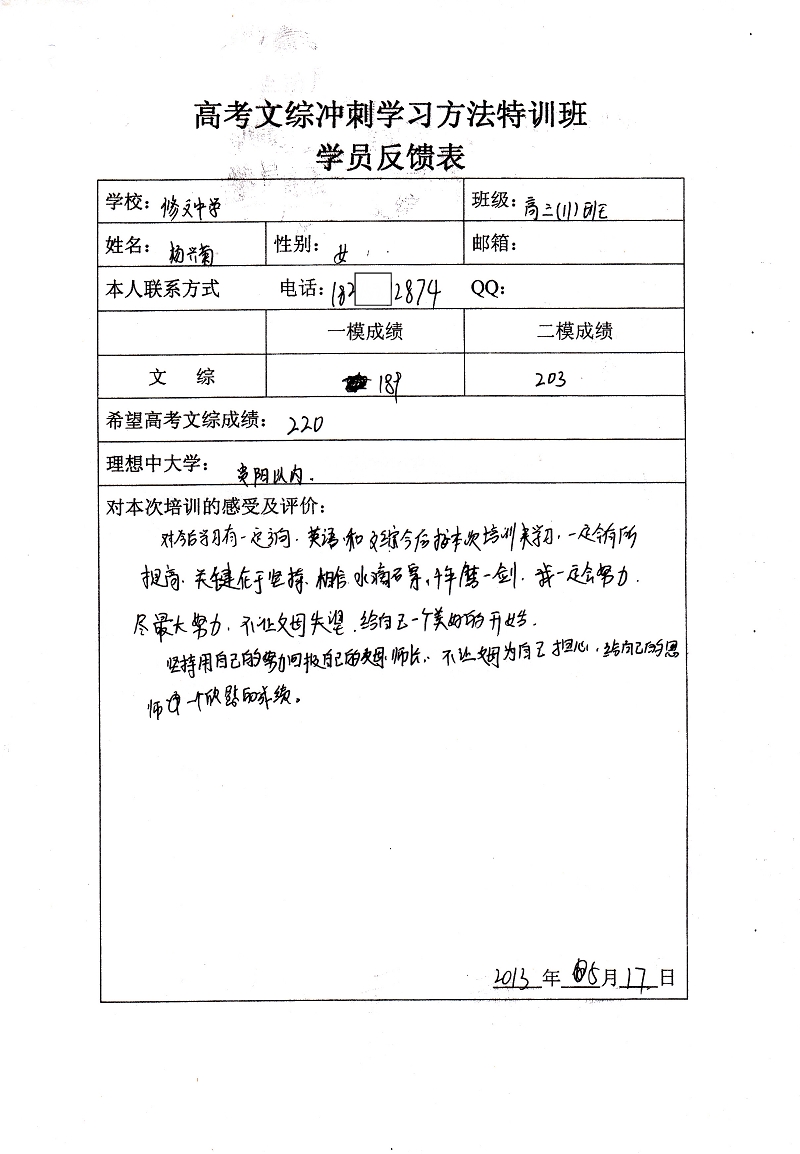 高考文综冲刺学习方法特训班
学员反馈表
学校：修文中学 班级：高三(11)班
姓名：杨兴菊 性别：女 邮箱：
本人联系方式 电话：182 2874 QQ：
一模成绩 二模成绩
文 综 189 203
希望高考文综成绩：220
理想中大学：贵阳以内.
对本次培训的感受及评价：
对今后学习有一定方向．英语和文综今后按本次培训来学习，一定会有所
提高．关键在于坚持．相信水滴石穿，十年磨一剑．我一定会努力．
尽最大努力，不让父母失望．给自己一个美好的开始．
坚持用自己的努力回报自己的父母．师长．不让父母为自己担心，给自己的恩
师 一个欣慰的成绩。
2013 年 05 月 17 日